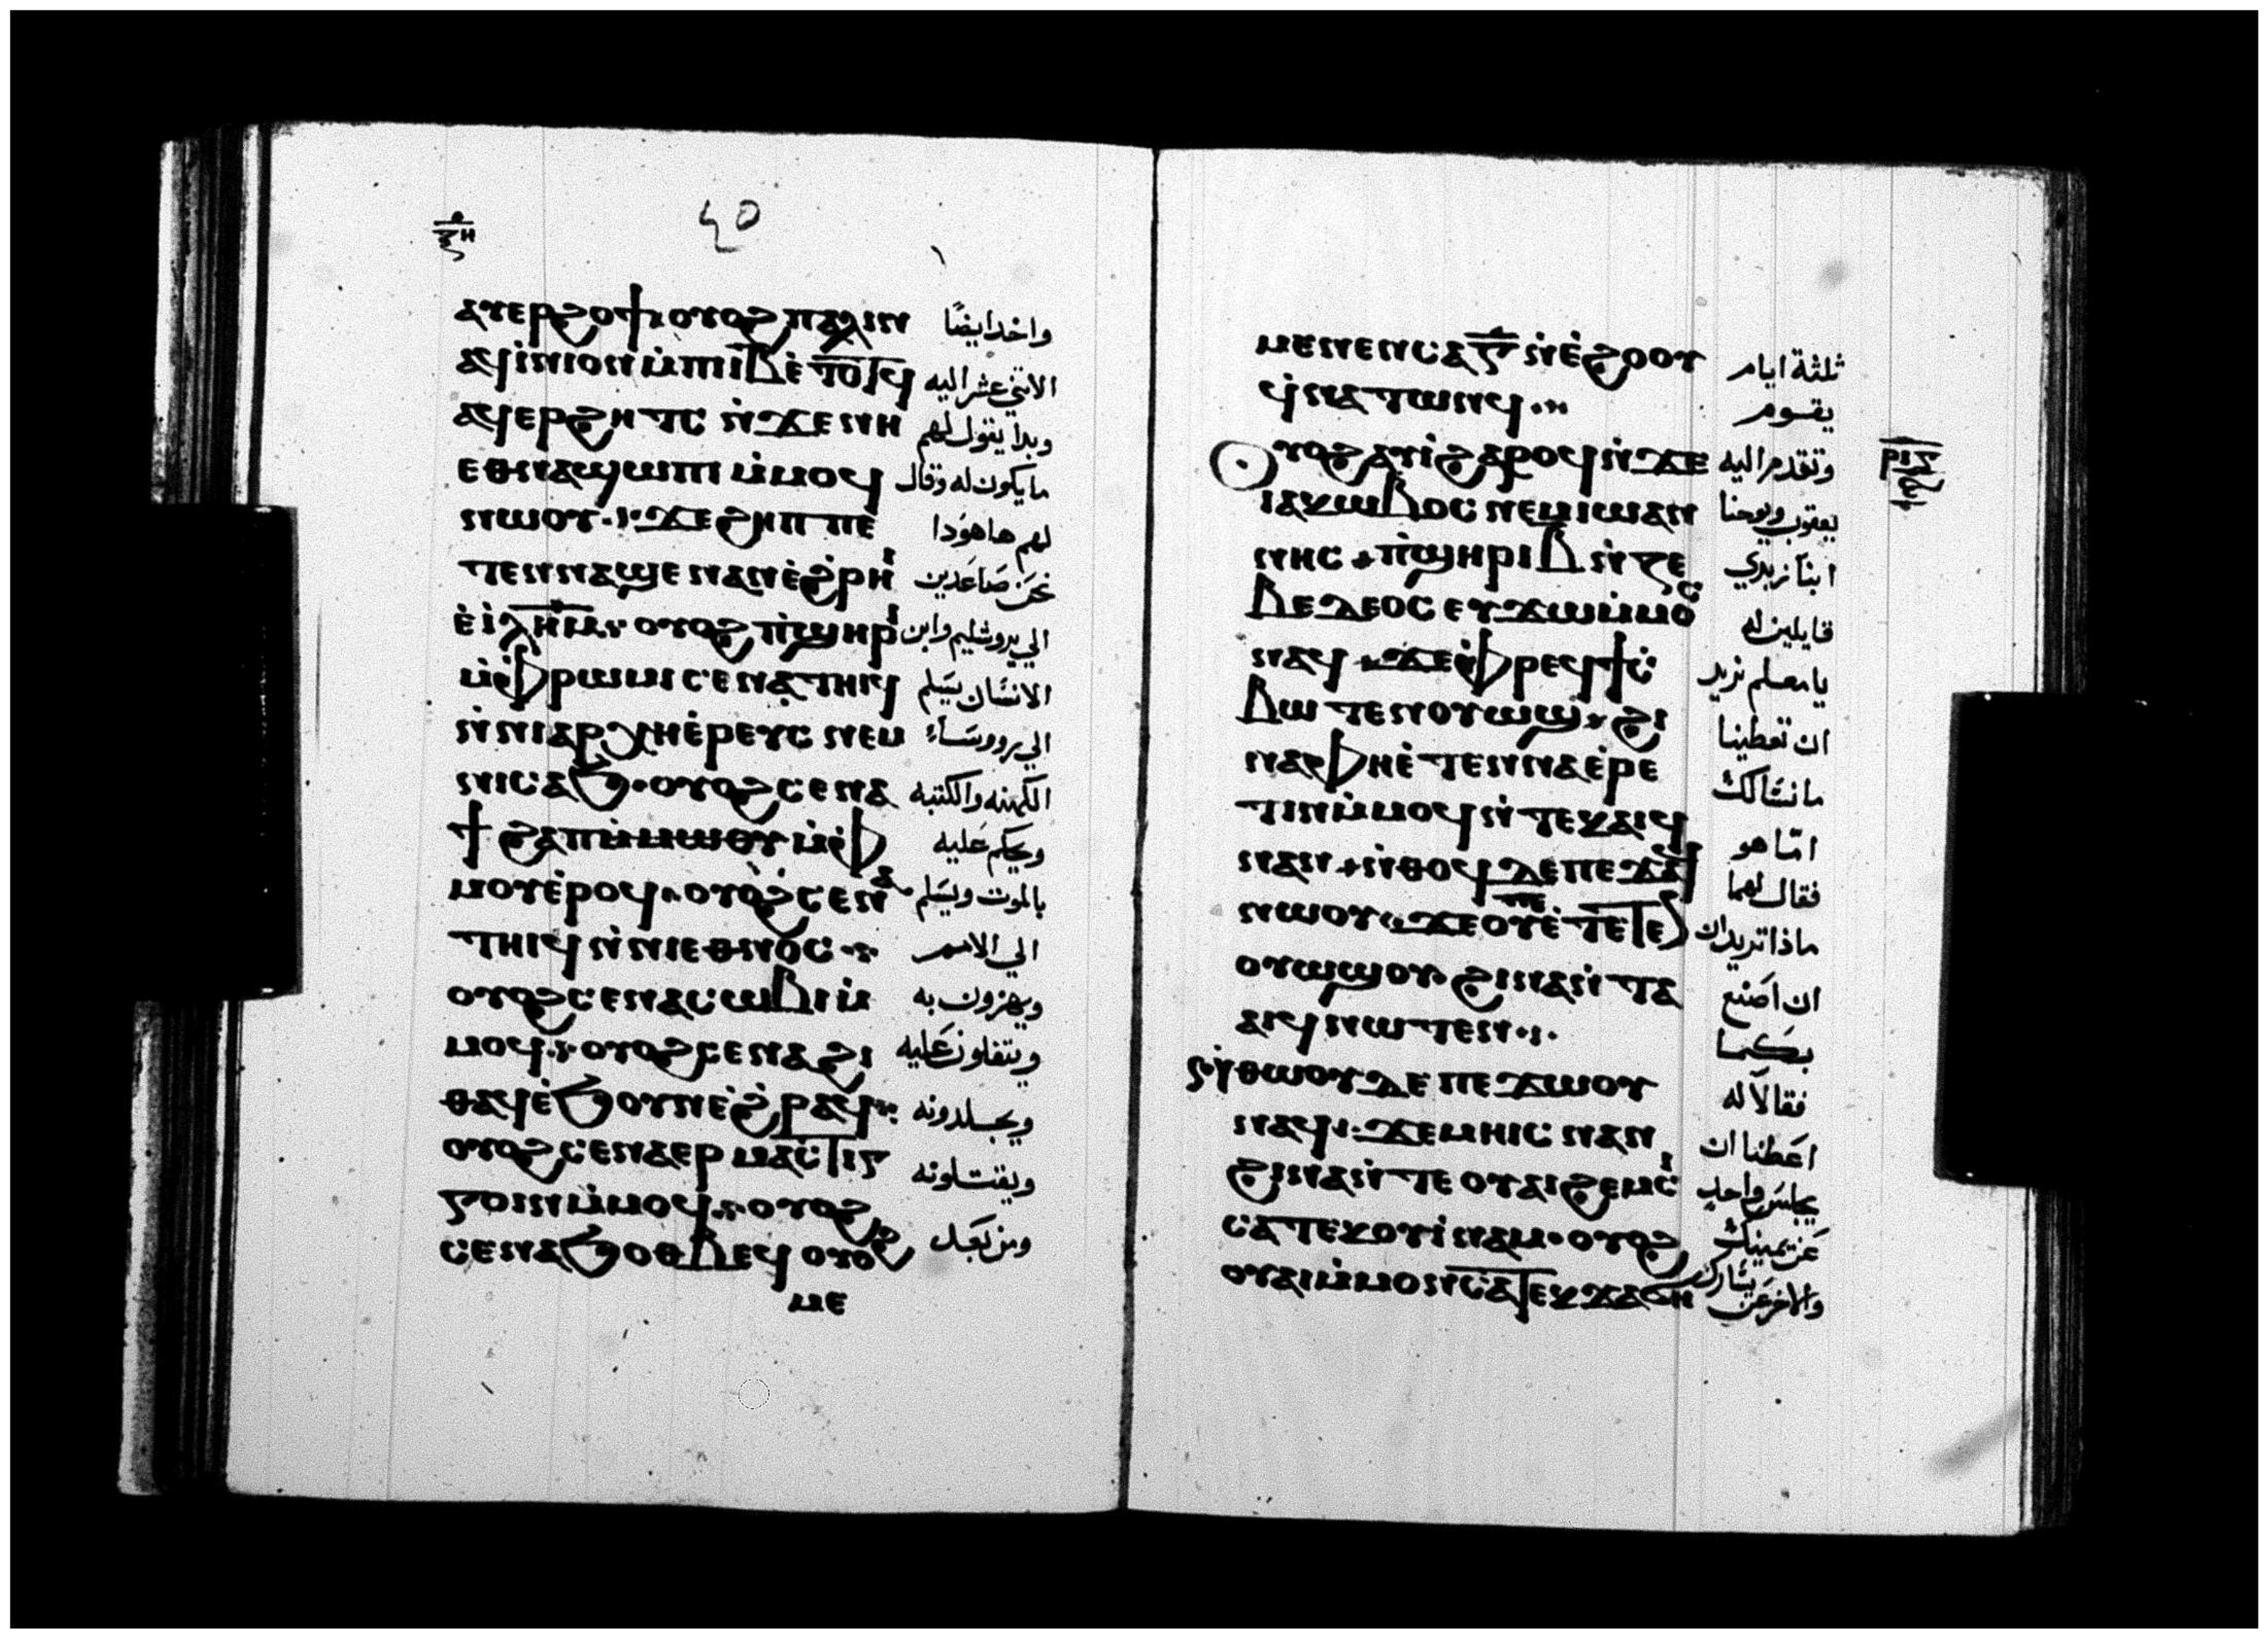 ⲝⲏ
ⲁⲩⲉⲣϩⲟϯ ⲟⲩⲟϩ ⲡⲁⲗⲓⲛ واخد ايضًا
ⲁϥⲓⲛⲓⲟⲛ ⲙⲡⲓⲓⲃ ⲉⲧⲟⲧϥ الاثني عشر اليه
ⲁϥⲉⲣϩⲏⲧⲥ ⲛϫⲉ ⲛⲏ وبدا يقول لهم
ⲉⲑⲛⲁϣⲱⲡⲓ ⲙⲙⲟϥ ما يكون له وقال
ⲛⲱⲟⲩ ϫⲉ ϩⲏⲡⲡⲉ لهم ها هودا
ⲧⲉⲛⲛⲁϣⲉ ⲛⲁⲛ ⲉϩⲣⲏⲓ نحن صاعدين
ⲉⲓⲗⲏⲙ ⲟⲩⲟϩ ⲡϣⲏⲣⲓ الي يروشليم وابن
ⲙⲫⲣⲱⲙⲓ ⲥⲉⲛⲁⲧⲏⲓϥ الانسان يسلم
ⲛⲛⲓⲁⲣⲭⲏⲉⲣⲉⲩⲥ ⲛⲉⲙ الي رووساء
ⲛⲓⲥⲁϧ ⲟⲩⲟϩ ⲥⲉⲛⲁ الكهنه والكتبه
ϯϩⲁⲡ ⲙⲙⲱⲟⲩ ⲙⲫ ويحكم عليه
ⲙⲟⲩ ⲉⲣⲟϥ ⲟⲩⲟϩ ⲥⲉⲛⲁ بالموت ويسلم
ⲧⲏⲓϥ ⲛⲛⲓⲉⲑⲛⲟⲥ الي الامم
ⲟⲩⲟϩ ⲥⲉⲛⲁⲥⲱⲃⲓ ⲙ ويهزون به
ⲙⲟϥ ⲟⲩⲟϩ ⲥⲉⲛⲁϩⲓ ويتفلون عليه
ⲑⲁϥ ⲉϧⲟⲩⲛ ⲉϩⲣⲁϥ ويجلدونه
ⲟⲩⲟϩ ⲥⲉⲛⲁⲉⲣⲙⲁⲥⲧⲓⲅ ويقتلونه
ⲅⲟⲓⲛ ⲙⲙⲟϥ ⲟⲩⲟϩ
ⲥⲉⲛⲁϧⲟⲑⲃⲉϥ ⲟⲩⲟϩ ومن بعد
ⲙⲉ
ⲙⲉⲛⲉⲛⲥⲁ ⲅ ⲛⲉϩⲟⲟⲩ ثلثة ايام
ϥⲛⲁⲧⲱⲛϥ يقوم
ⲟⲩⲟϩ ⲁⲩⲓ ϩⲁⲣⲟϥ ⲛϫⲉ وتقدم اليه
ⲓⲁⲕⲱⲃⲟⲥ ⲛⲉⲙ ⲓⲱⲁⲛ يعقوب ويوحنا
ⲛⲏⲥ ⲡϣⲏⲣⲓ ⲃ ⲛⲍⲉ ابنا زبدي
ⲃⲉⲇⲉⲟⲥ ⲉⲩϫⲱ ⲙⲙⲟⲥ قايلين له
ⲛⲁϥ ϫⲉ ⲫⲣⲉϥϯⲥ يا معلم نريد
ⲃⲱ ⲧⲉⲛⲟⲩⲱϣ ϩⲓ ان تعطينا
ⲛⲁ ⲫⲏ ⲉⲧⲉⲛⲛⲁⲉⲣⲉ ما نسالك
ⲧⲓⲛ ⲙⲙⲟϥ ⲛⲧⲉⲕⲁⲓϥ امّا هو
ⲛⲁⲛ ⲛⲑⲟϥ ⲇⲉ ⲡⲉϫⲁϥ فقال لهما
ⲛⲱⲟⲩ ϫⲉ ⲟⲩ ⲡⲉ ⲉⲧⲉⲧⲉⲛ ماذا تريدان
ⲟⲩⲱϣ ⲟⲩ ϩⲓⲛⲁ ⲛⲧⲁ ان اصنع
ⲁⲓϥ ⲛⲱⲧⲉⲛ بكما
ⲛⲑⲱⲟⲩ ⲇⲉ ⲡⲉϫⲱⲟⲩ فقالا له
ⲛⲁϥ ϫⲉ ⲙⲏⲓⲥ ⲛⲁⲛ اعطنا ان
ϩⲓⲛⲁ ⲛⲧⲉ ⲟⲩⲁⲓ ϩⲉⲙⲥⲓ يجلس واحد
ⲥⲁ ⲧⲉⲕⲟⲩⲓⲛⲁⲙ ⲟⲩⲟϩ عن يمينك
ⲟⲩⲁⲓ ⲙⲙⲟⲛ ⲥⲁ ⲧⲉⲕϫⲁϭⲏ والاخر عن يسارك